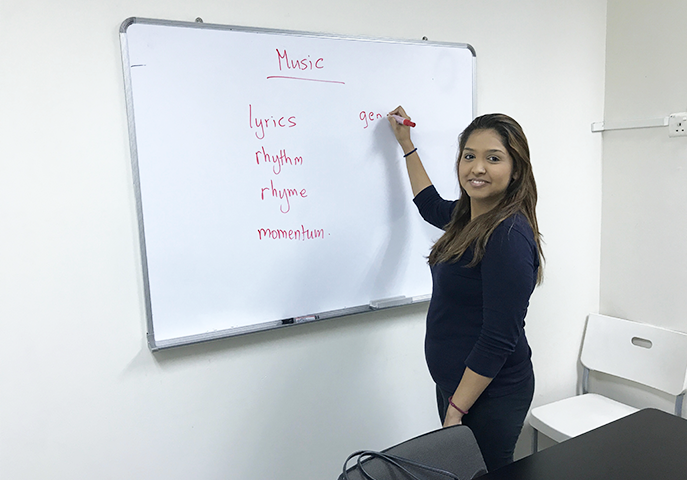 Music
lyrics
rhythm
rhyme
momentum.
gen